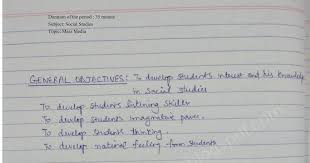 Duration of the period : 35 minute
Subject: Social Studies
Topic: Mass Media
GENERAL OBJECTIVES: To develop students interest and his knowledge
in Social studies
To develop students listening skills
To develop students imaginative power.
To develop students thinking.
To develop national feeling from students